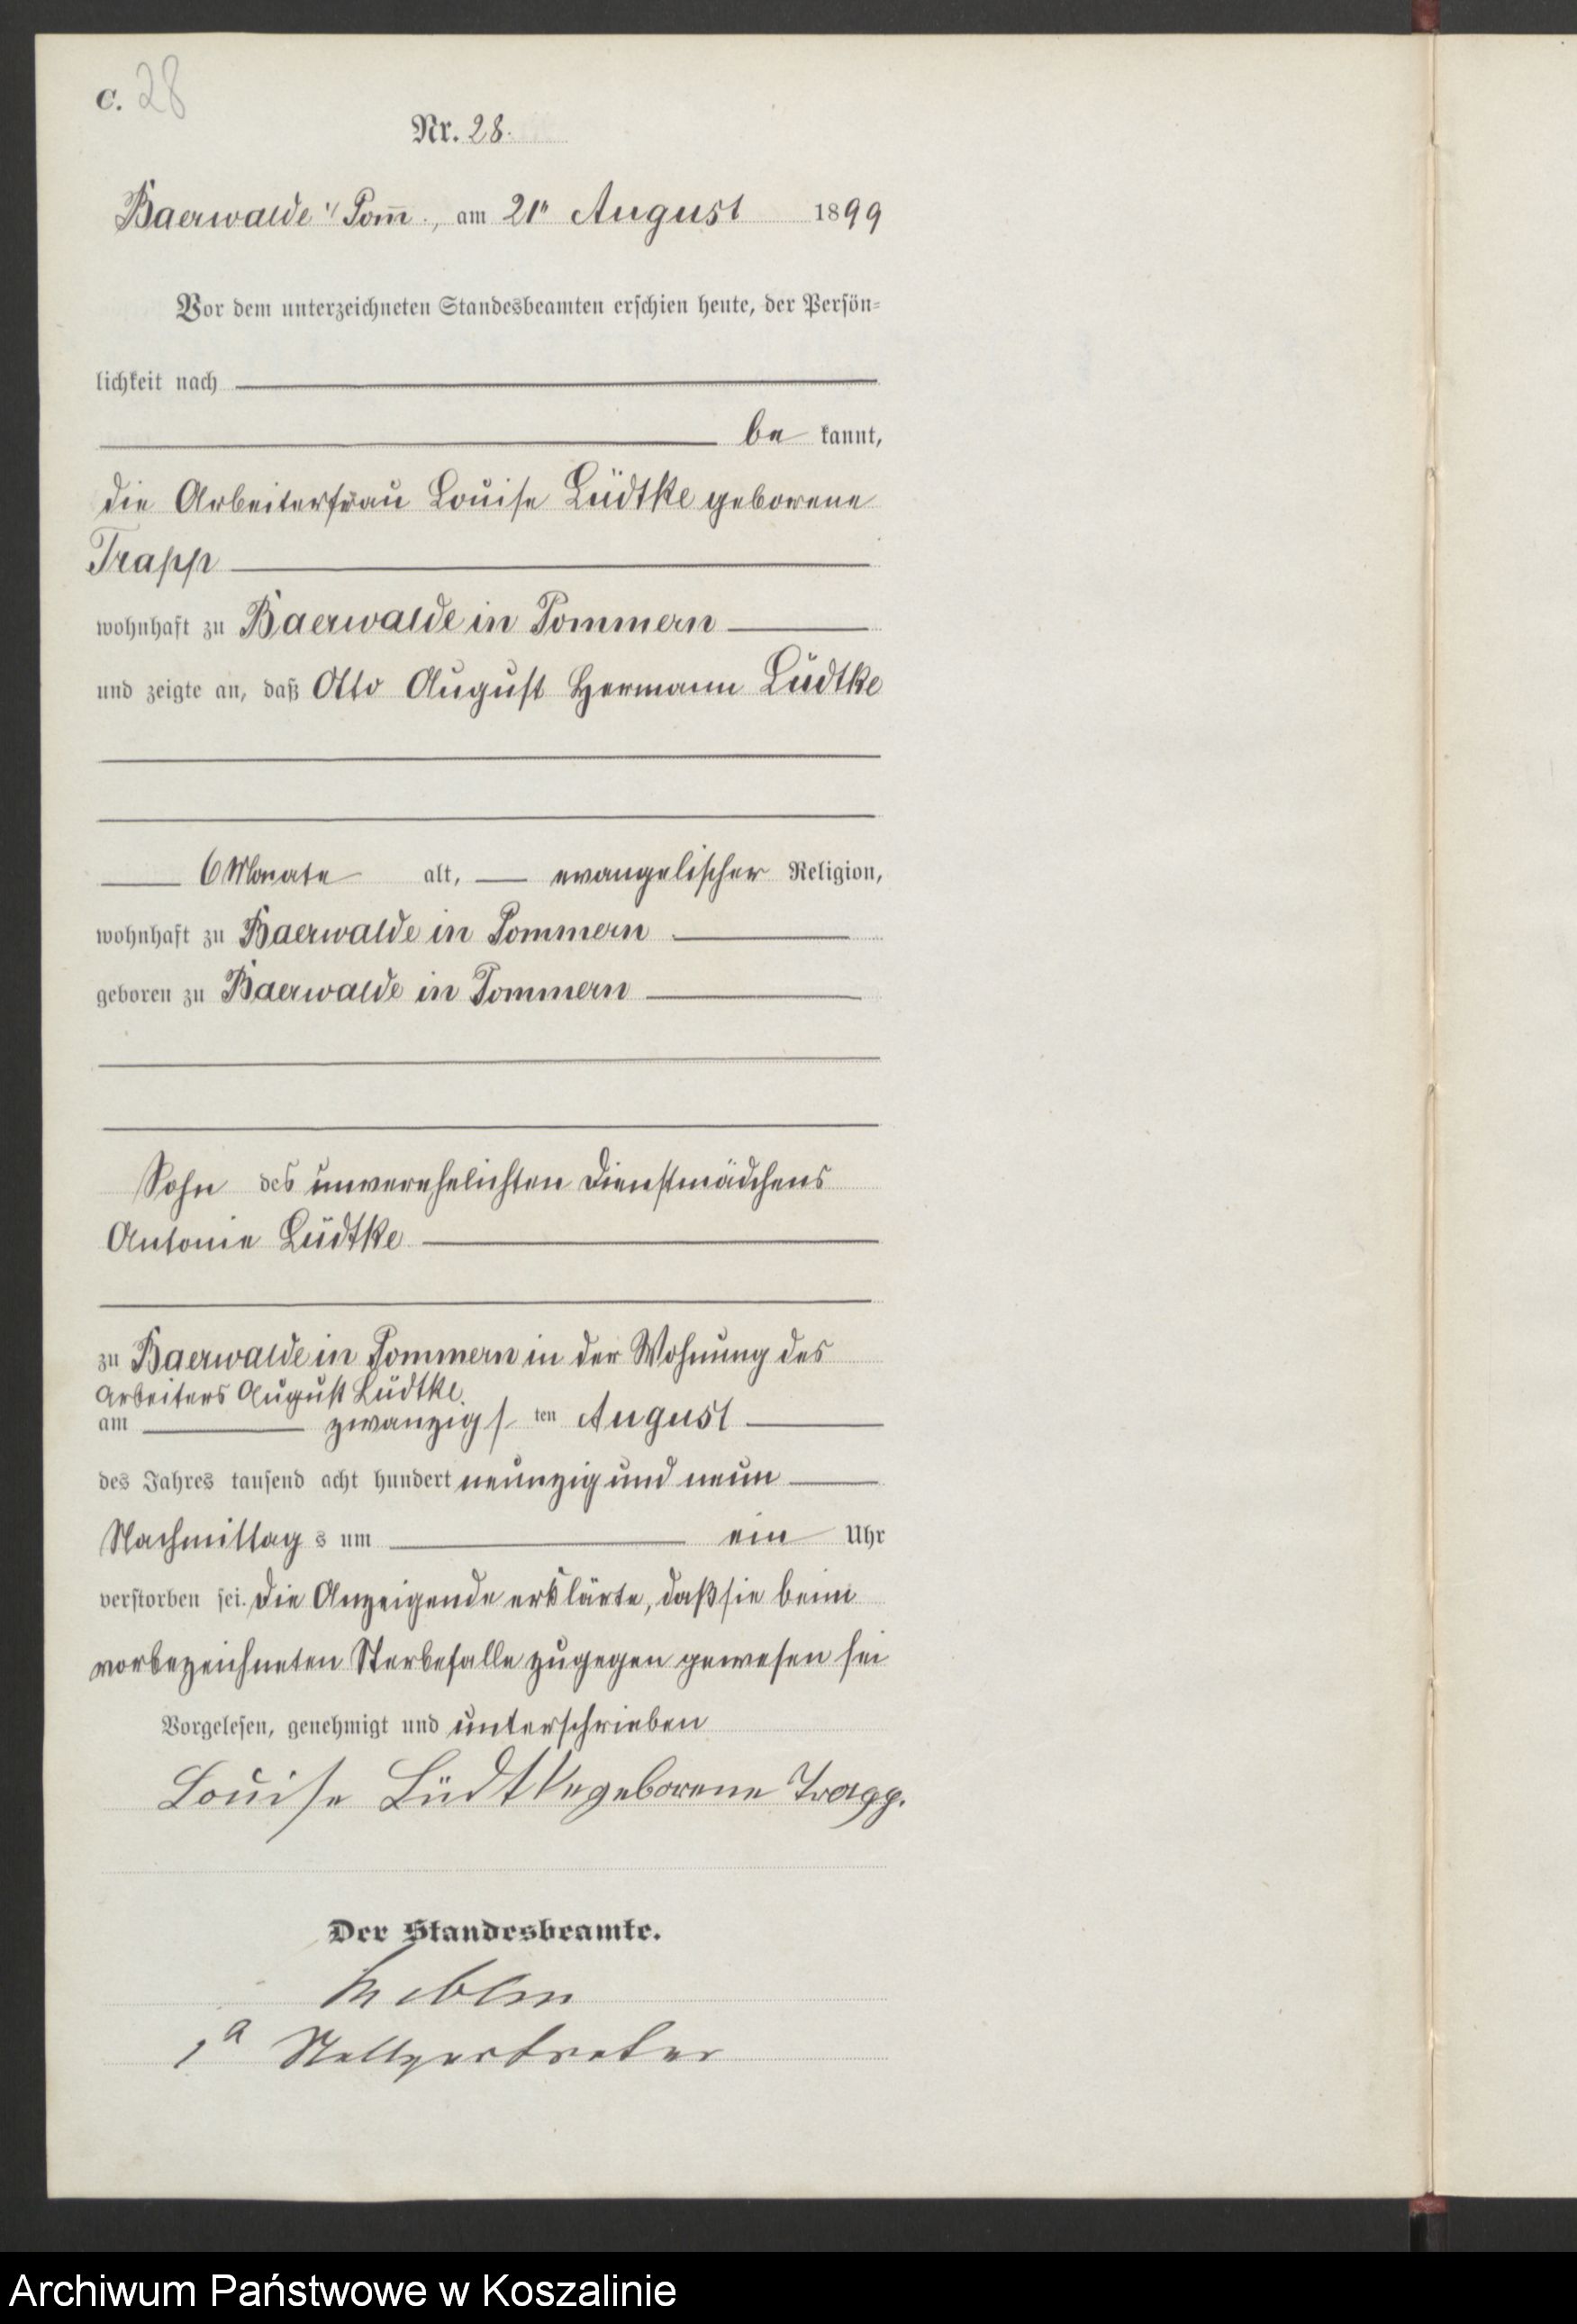 C. 28
Nr. 28.
Baerwalde i/ Pom̄., am 21ⁿ August 1899
Vor dem unterzeichneten Standesbeamten erschien heute, der Persön=
lichkeit nach
be kannt,
die Arbeiterfrau Louise Lüdtke geborene
Trapp
wohnhaft zu Baerwalde in Pommern
und zeigte an, daß Otto August Hermann Lüdtke
6 Monate alt, evangelischer Religion,
wohnhaft zu Baerwalde in Pommern
geboren zu Baerwalde in Pommern
Sohn des unverehelichten Dienstmädchens
Antonie Lüdtke
zu Baerwalde in Pommern in der Wohnung des
Arbeiters August Lüdtke.
am zwanzigs ten August
des Jahres tausend acht hundert neunzig und neun
Nachmittag s um ein Uhr
verstorben sei. Die Anzeigende erklärte, daß sie beim
vorbezeichneten Sterbefalle zugegen gewesen sei
Vorgelesen, genehmigt und unterschrieben
Louise Lüdtke geborene Trapp.
Der Standesbeamte.
Stellvertreter
Archiwum Państwowe w Koszalinie